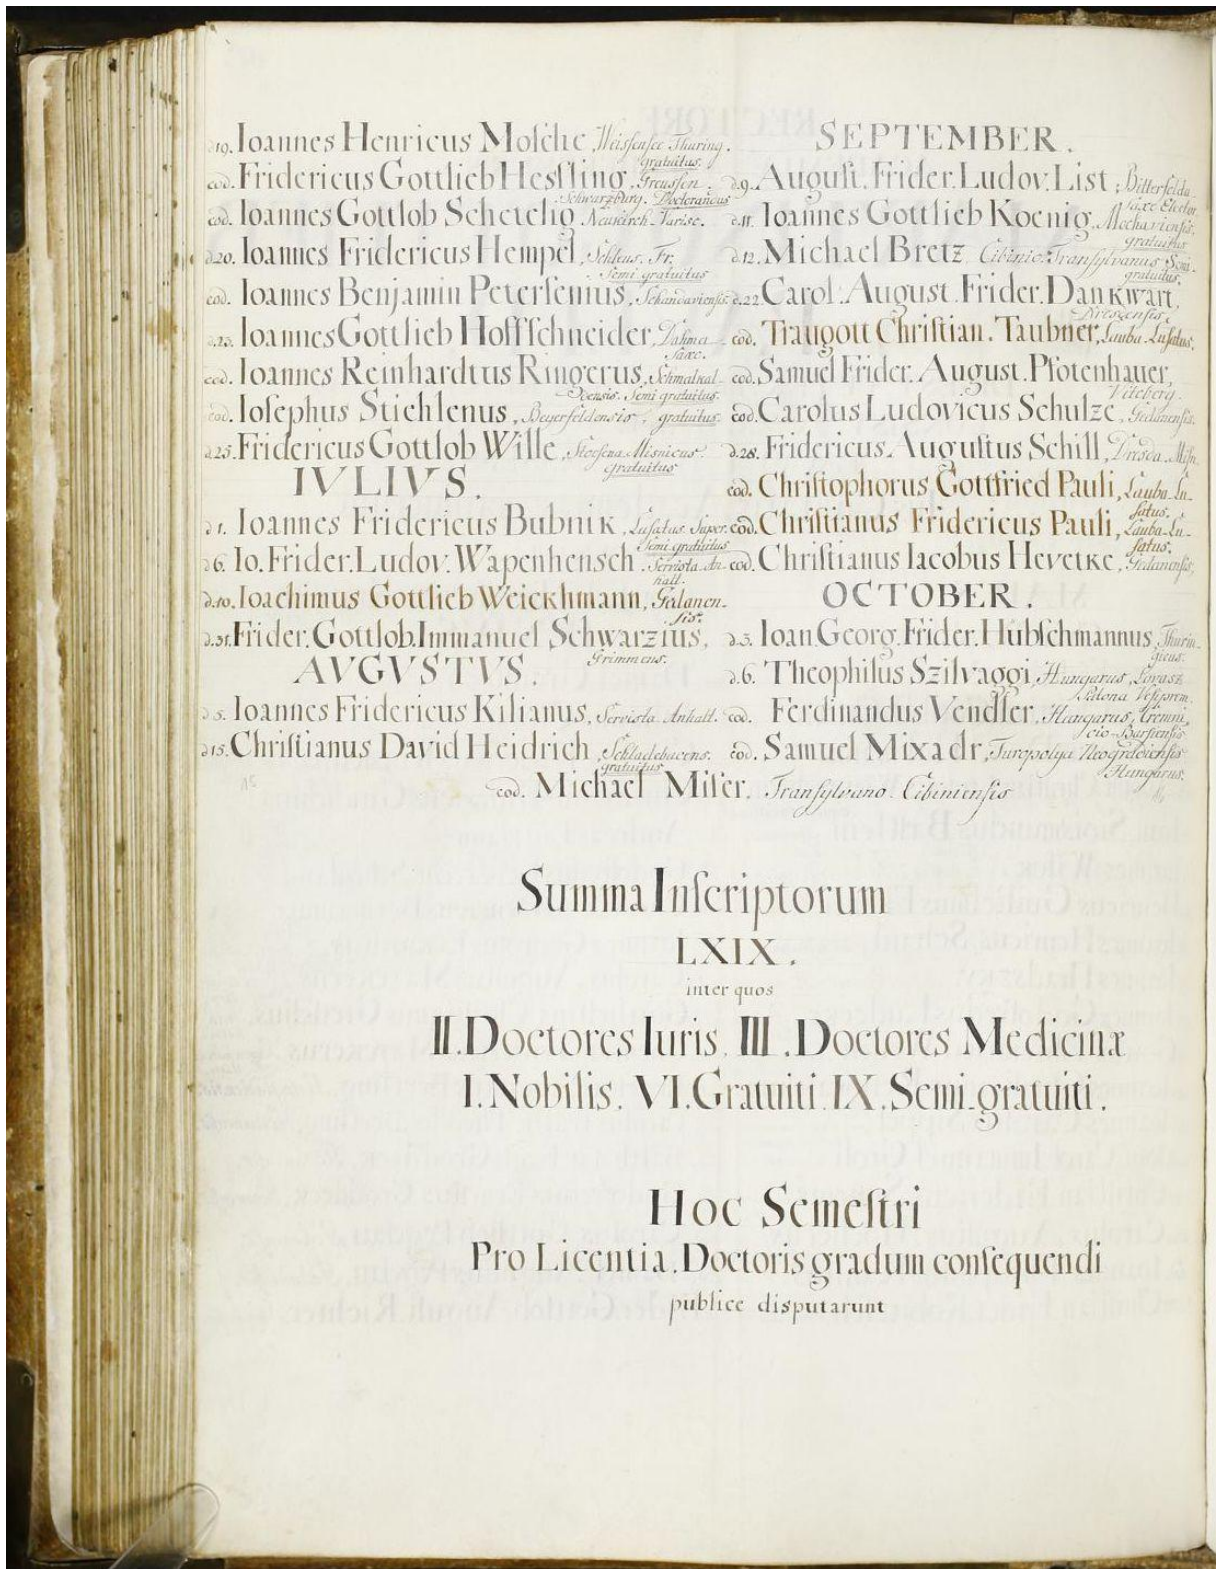 d 19. Ioannes Henricus Mosche, Weissensee Thuring.
gratuitus.
eod. Fridericus Gottlieb Hesſling, Greussen.
Schwarzburg. Doctorandus
eod. Ioannes Gottlob Schetelig, Neukirch-Varisc.
d.20. Ioannes Fridericus Hempel, Schleus. Fr.
Semi gratuitus
eod. Ioannes Benjamin Peterſenius, Schandaviensis.
d.23. Ioannes Gottlieb Hoffſchneider, Dahma
Saxo.
eod. Ioannes Reinhardtus Ringerus, Schmalkal-
densis. Semi gratuitus.
eod. Ioſephus Stichlenus, Beyerfeldensis, gratuitus.
d.25. Fridericus Gottlob Wille, Stoesena Misnicus.
gratuitus
IVLIVS.
d 1. Ioannes Fridericus Bubnik, Lusatus Super.
Semi gratuitus
d 6. Io. Frider. Ludov. Wapenhensch. Servista An-
halt.
d.10. Ioachimus Gottlieb Weickhmann, Gedanen-
sis.
d.31. Frider. Gottlob. Immanuel Schwarzius,
Grimmens.
AVGVSTVS.
d 5. Ioannes Fridericus Kilianus, Servista Anhalt.
d 15. Chriſtianus David Heidrich, Schladebacens.
gratuitus
SEPTEMBER.
d.9. Auguſt. Frider. Ludov. List, Bitterfelda
Saxo Elector
d.11. Ioannes Gottlieb Koenig, Mochaviensis,
gratuitus
d.12. Michael Bretz, Cibinio-Tranſylvanus Semi-
gratuitus.
d.22. Carol. Auguſt. Frider. Dankwart,
Dresdensis,
eod. Traugott Chriſtian. Taubner, Lauba-Luſatus.
eod. Samuel Frider. Auguſt. Pfotenhauer,
Viteberg.
eod. Carolus Ludovicus Schulze, Gedanensis.
d.28. Fridericus Auguſtus Schill, Dresda-Miſn.
eod. Chriſtophorus Gottfried Pauli, Lauba-Lu-
ſatus.
eod. Chriſtianus Fridericus Pauli, Lauba-Lu-
ſatus.
eod. Chriſtianus Iacobus Hevetke, Gedanenſis,
OCTOBER.
d.3. Ioan. Georg. Frider. Hubſchmannus, Thurin-
gicus.
d.6. Theophilus Szilvaggi, Hungarus, Lovasz
Patona Veſsprem.
eod. Ferdinandus Vendler, Hungarus, Cremni,
cio-Barſiensis
eod. Samuel Mixadr, Turopolya Neogradiensis
Hungarus.
eod. Michael Miſer. Tranſylvano-Cibinienſis
Summa Inſcriptorum
LXIX.
inter quos
II. Doctores Iuris. III. Doctores Medicinæ
I. Nobilis. VI. Gratuiti. IX. Semi-gratuiti.
Hoc Semeſtri
Pro Licentia. Doctoris gradum conſequendi
publice disputarunt